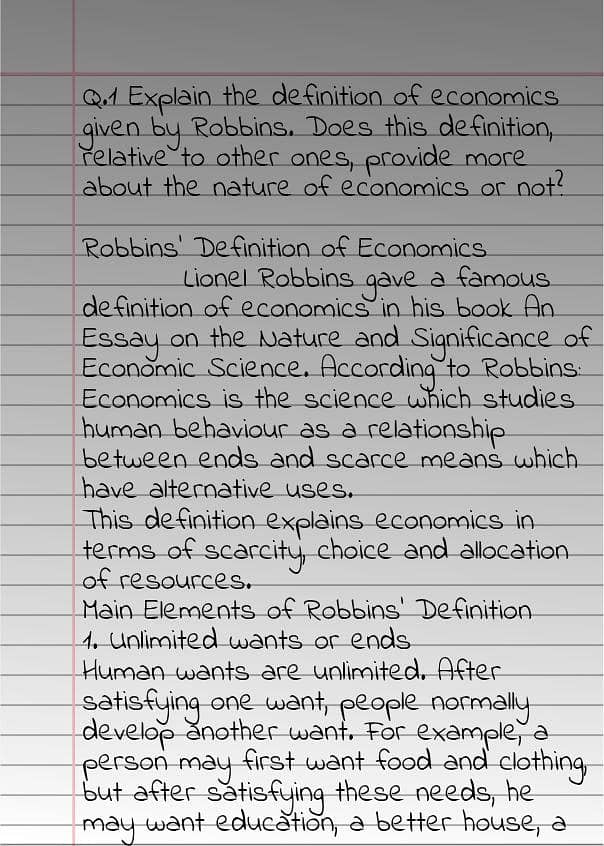 Q.1 Explain the definition of economics
given by Robbins. Does this definition,
relative to other ones, provide more
about the nature of economics or not?
Robbins' Definition of Economics
Lionel Robbins gave a famous
definition of economics in his book An
Essay on the Nature and Significance of
Economic Science. According to Robbins:
Economics is the science which studies
human behaviour as a relationship
between ends and scarce means which
have alternative uses.
This definition explains economics in
terms of scarcity, choice and allocation
of resources.
Main Elements of Robbins' Definition
1. Unlimited wants or ends
Human wants are unlimited. After
satisfying one want, people normally
develop another want. For example, a
person may first want food and clothing,
but after satisfying these needs, he
may want education, a better house, a